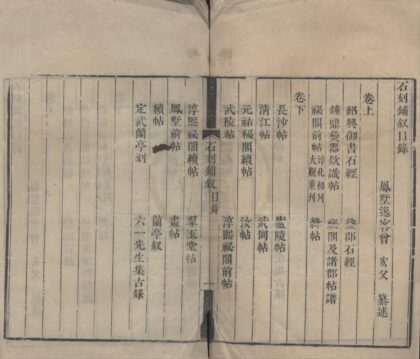 石刻鋪叙目錄
鳳墅逸客曾宏父 纂述
卷上
紹興御書石經 益郡石經
鐘鼎彝器欵識帖 祕閣及諸郡帖譜
祕閣前帖 淳化初刊 大觀重刊 絳帖
卷下
長沙帖 廬陵帖
清江帖 武岡帖
元祐祕閣續帖 汝帖
武陵帖 淳熙祕閣前帖
石刻鋪叙 目錄
淳熙祕閣續帖 羣玉堂帖
鳳墅前帖 畫帖
續帖 蘭亭叙
定武蘭亭刻 六一先生集古錄